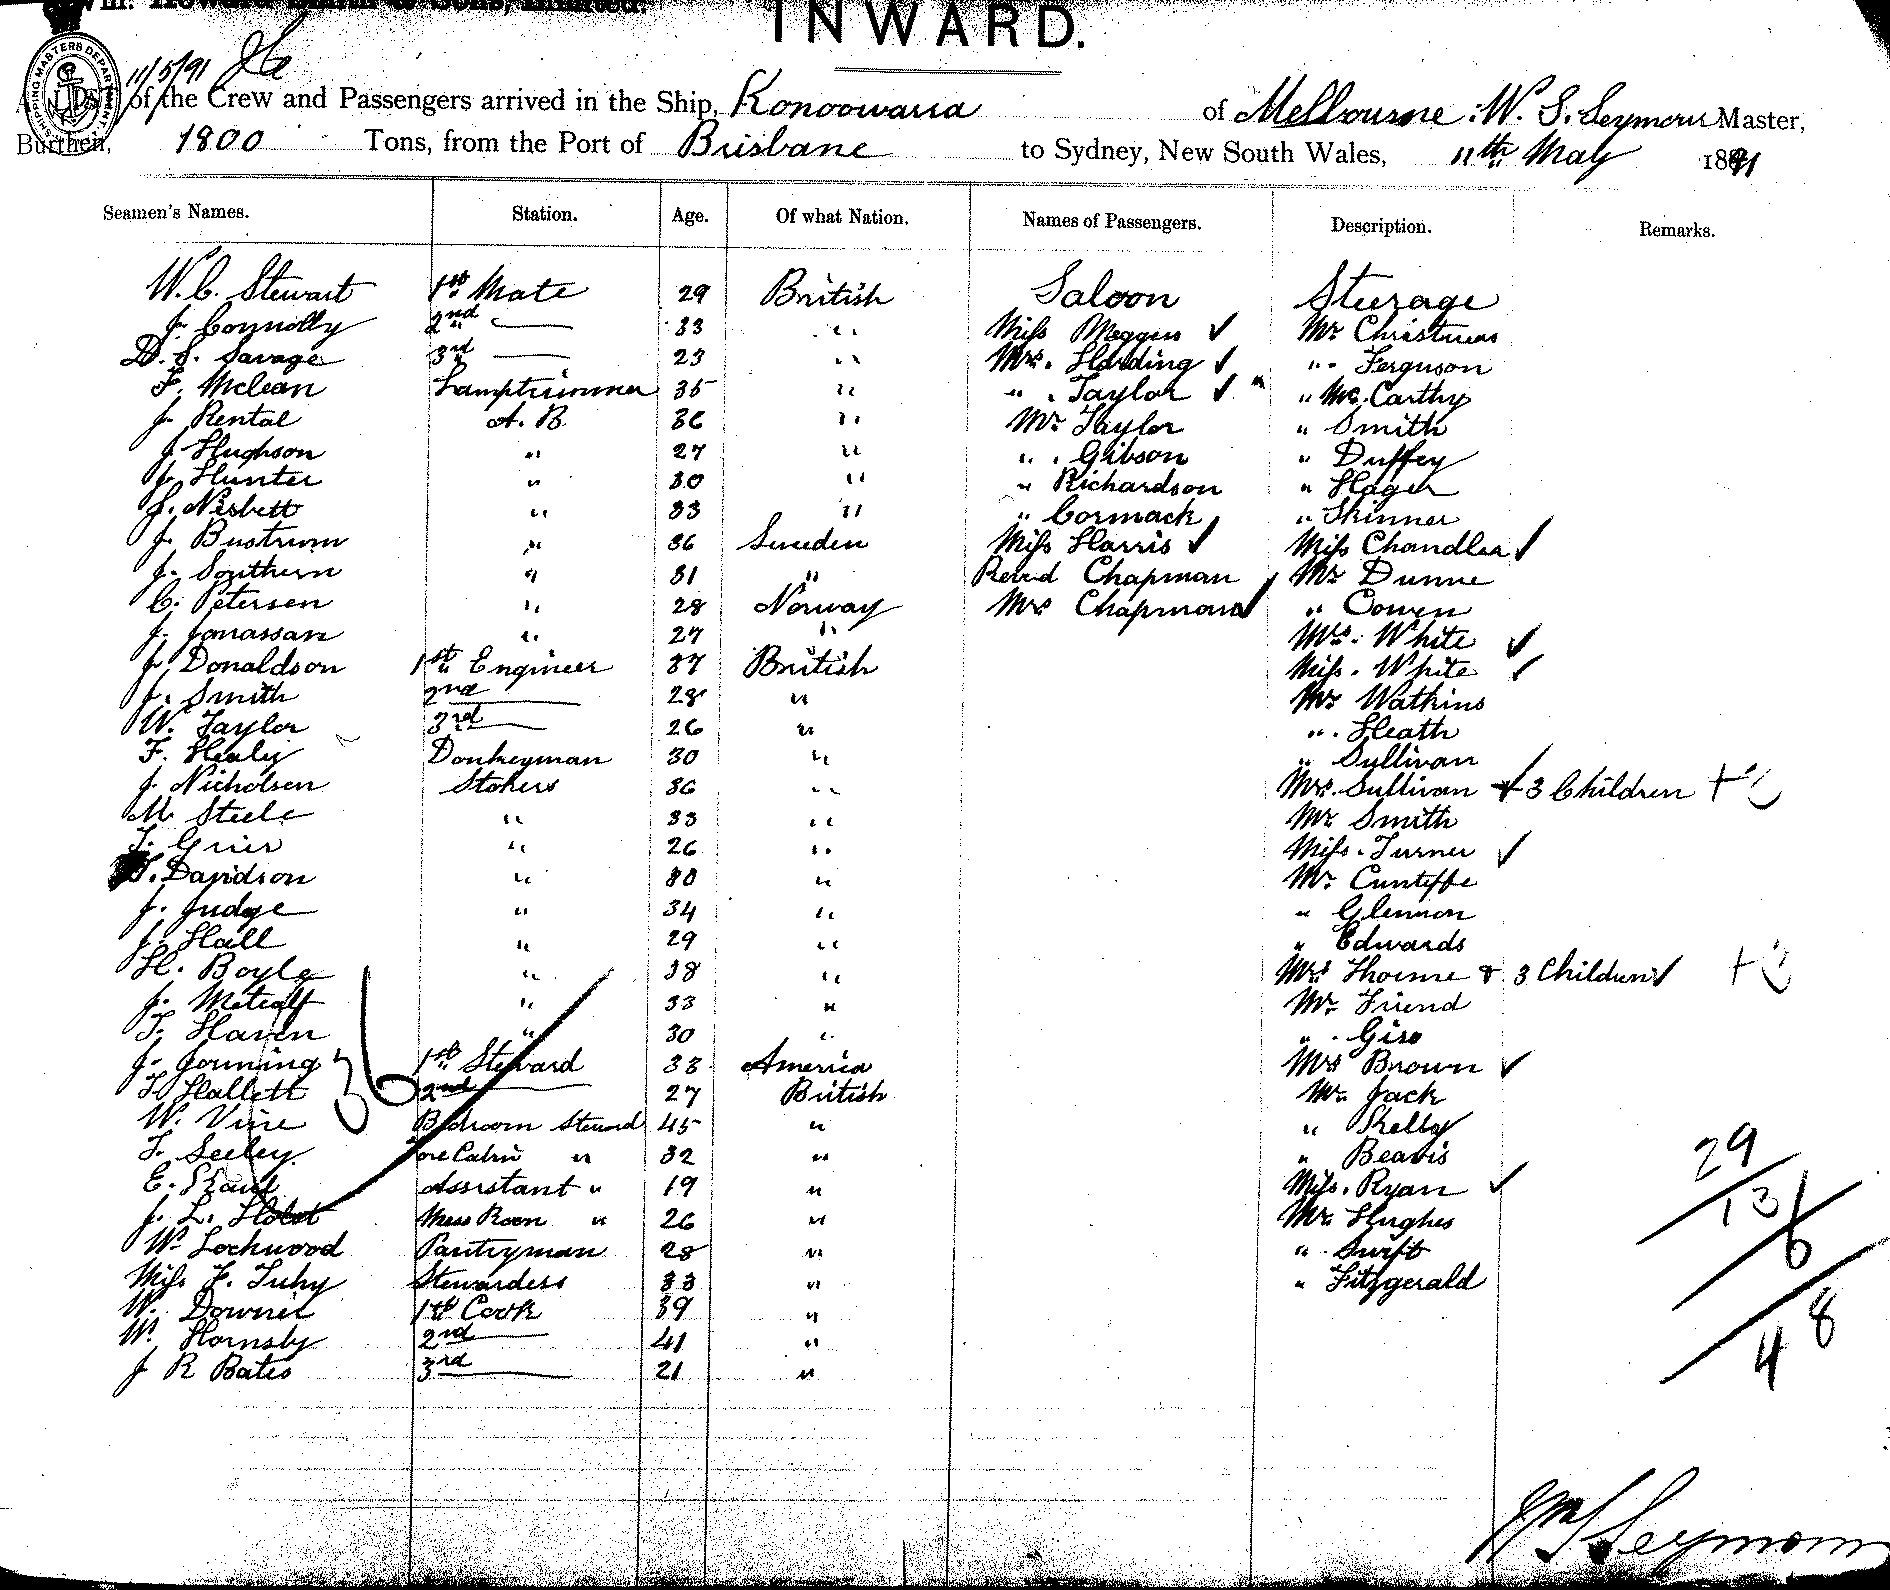 Wm. Howard Smith & Sons, Limited.
INWARD.
11/5/91
SHIPPING MASTERS DEPARTMENT
A LIST of the Crew and Passengers arrived in the Ship, Konoowarra of Melbourne. W. S. Seymour Master,
Burthen, 1800 Tons, from the Port of Brisbane to Sydney, New South Wales, 11th May 1891
Seamen's Names. Station. Age. Of what Nation. Names of Passengers. Description. Remarks.
W. C. Stewart 1st Mate 29 British Saloon Steerage
J. Connolly 2nd — 33 " Miss Meggus ✓ Mr Christmas
D. S. Savage 3rd — 23 " Mrs. Harding ✓ " Ferguson
F. Mclean Lamptrimmer 35 " " Taylor ✓ " McCarthy
J. Rental A. B. 36 " Mr Taylor " Smith
J. Hughson " 27 " " Gibson " Duffey
J. Hunter " 30 " " Richardson " Hager
J. Nisbett " 33 " " Cormack " Skinner
J. Bustrum " 36 Sweden Miss Harris ✓ Miss Chandler ✓
J. Southern " 31 " Revd Chapman Mr Dunne
C. Petersen " 28 Norway Mrs Chapman ✓ " Cowen
J. Jonassan " 27 " Mrs. White ✓
J. Donaldson 1st Engineer 37 British Miss. White ✓
J. Smith 2nd — 28 " Mr Watkins
W. Taylor 3rd — 26 " " Heath
F. Healy Donkeyman 30 " " Sullivan
J. Nicholsen Stokers 36 " Mrs. Sullivan + 3 Children
M. Steele " 33 " Mr Smith
T. Grier " 26 " Miss. Turner ✓
T. Davidson " 30 " Mr. Cunliffe
J. Judge " 34 " " Glennon
J. Hall " 29 " " Edwards
H. Boyle " 38 " Mrs Thorne & 3 Children ✓
J. Metcalf " 33 " Mr. Friend
T. Haven " 30 " " Giso
J. Jonning 1st Steward 33 America Mrs Brown ✓
T. Hallett 2nd — 27 British Mr. Jack
W. Vine Bedroom Steward 45 " " Skelly
T. Seeley Fore Cabin " 32 " " Beavis
E. Assistant " 19 " Miss. Ryan ✓
J. L. Holst Mess Room " 26 " Mr. Hughes
W. Lockwood Pantryman 28 " " Swift
Miss F. Tuhy Stewardess 33 " " Fitzgerald
W. Downie 1st Cook 39 "
W. Hornsby 2nd — 41 "
J R Bates 3rd — 21 "
36
29
13
6
48
Wm S Seymour